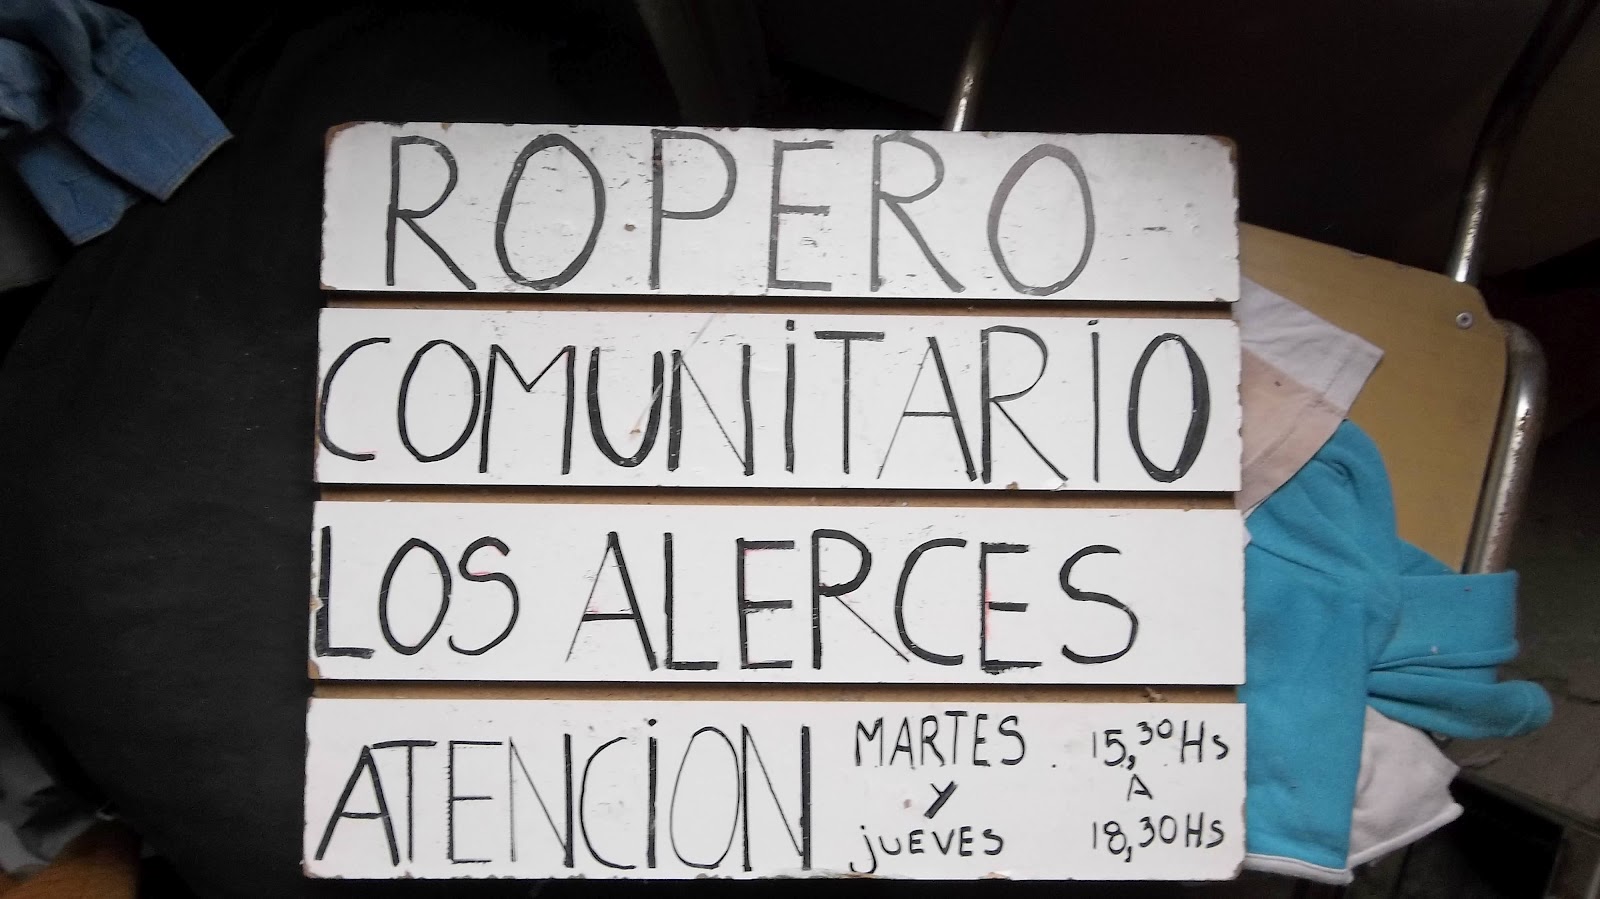 ROPERO -
COMUNiTARiO
LOS ALERCES
ATENCiON MARTES 15,30 Hs
Y A
jUEVES 18,30 Hs